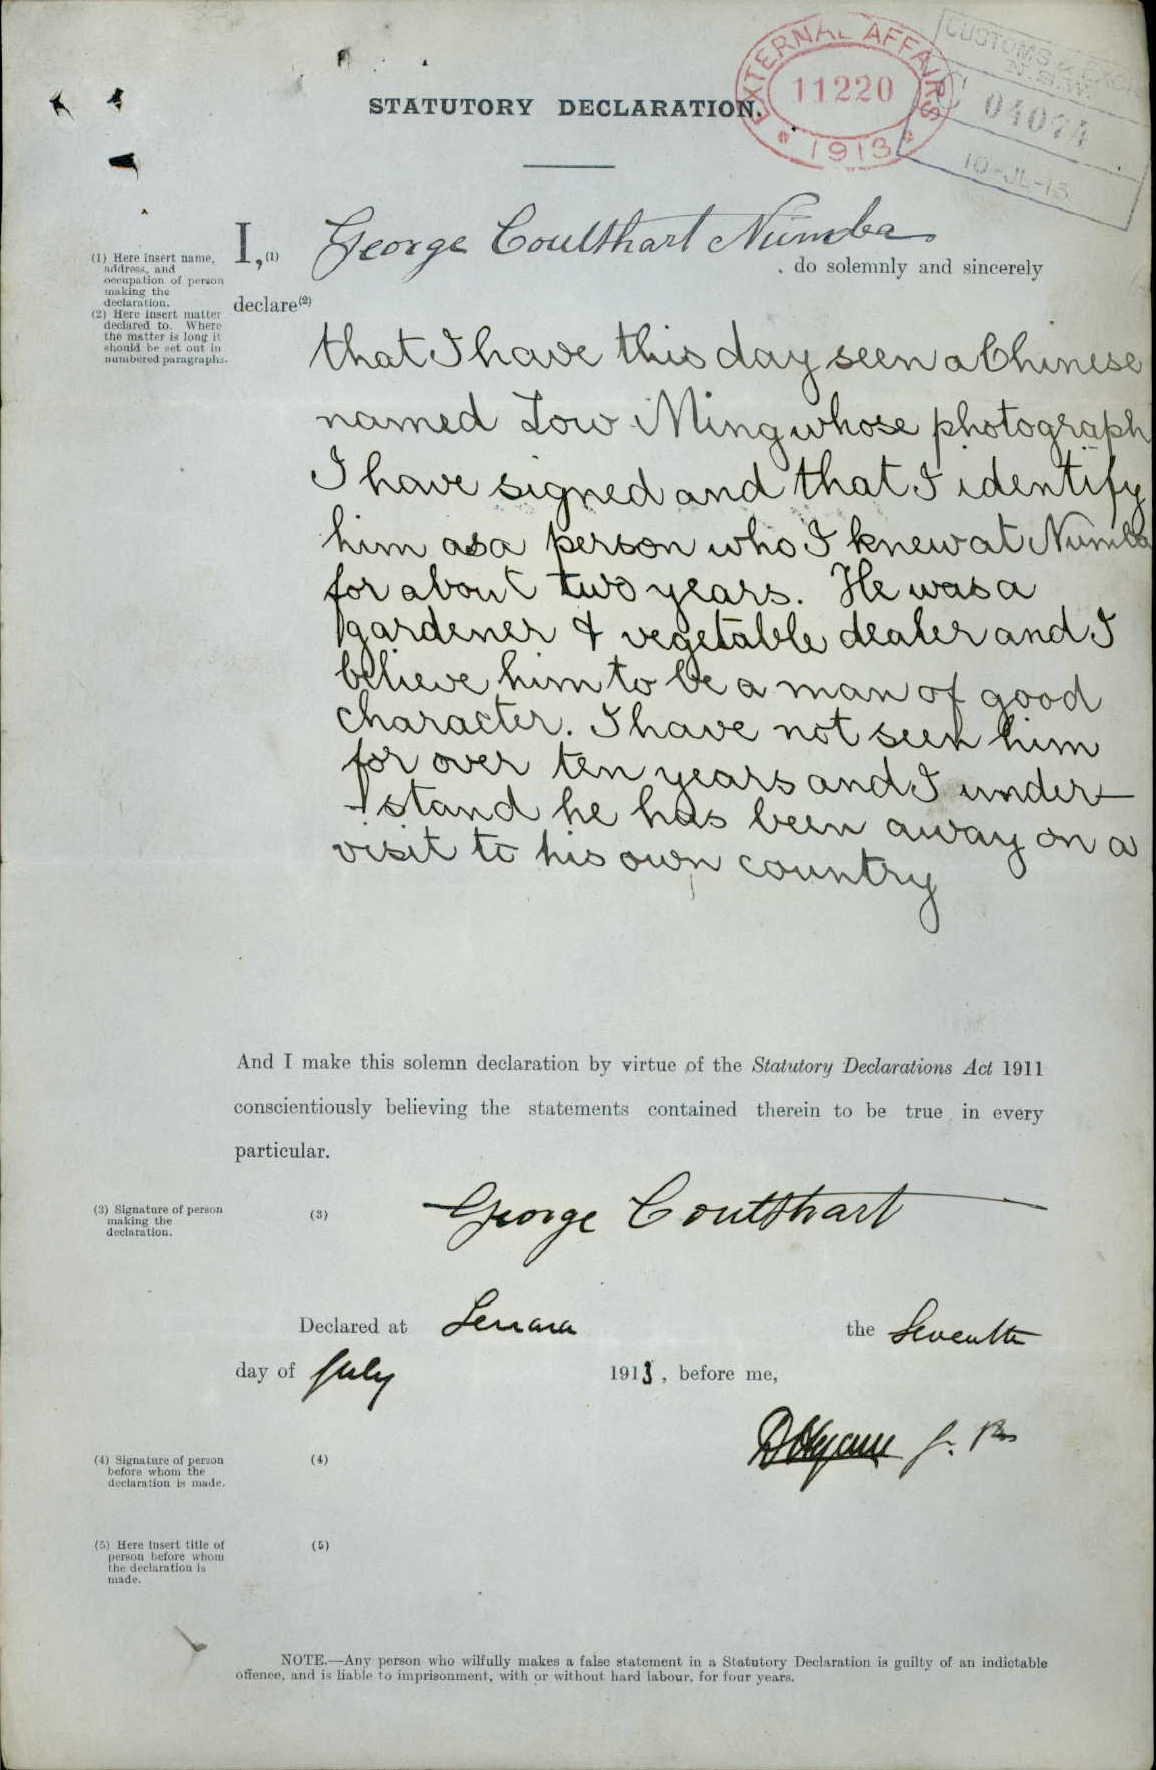 EXTERNAL AFFAIRS
11220
1913
CUSTOMS & EXCISE
N.S.W.
04074
10-JL-13
STATUTORY DECLARATION.
I,(1) George Coulthart Numba
do solemnly and sincerely
declare(2)
(1) Here insert name,
address, and
occupation of person
making the
declaration.
(2) Here insert matter
declared to. Where
the matter is long it
should be set out in
numbered paragraphs.
that I have this day seen a Chinese
named Low Ming whose photograph
I have signed and that I identify
him as a person who I knew at Numba
for about two years. He was a
gardener & vegetable dealer and I
believe him to be a man of good
character. I have not seen him
for over ten years and I under-
stand he has been away on a
visit to his own country
And I make this solemn declaration by virtue of the Statutory Declarations Act 1911
conscientiously believing the statements contained therein to be true in every
particular.
(3) Signature of person
making the
declaration.
(3) George Coulthart
Declared at Terrara the Seventh
day of July 1913, before me,
J. P.
(4) Signature of person
before whom the
declaration is made.
(4)
(5) Here insert title of
person before whom
the declaration is
made.
(5)
NOTE.—Any person who wilfully makes a false statement in a Statutory Declaration is guilty of an indictable
offence, and is liable to imprisonment, with or without hard labour, for four years.